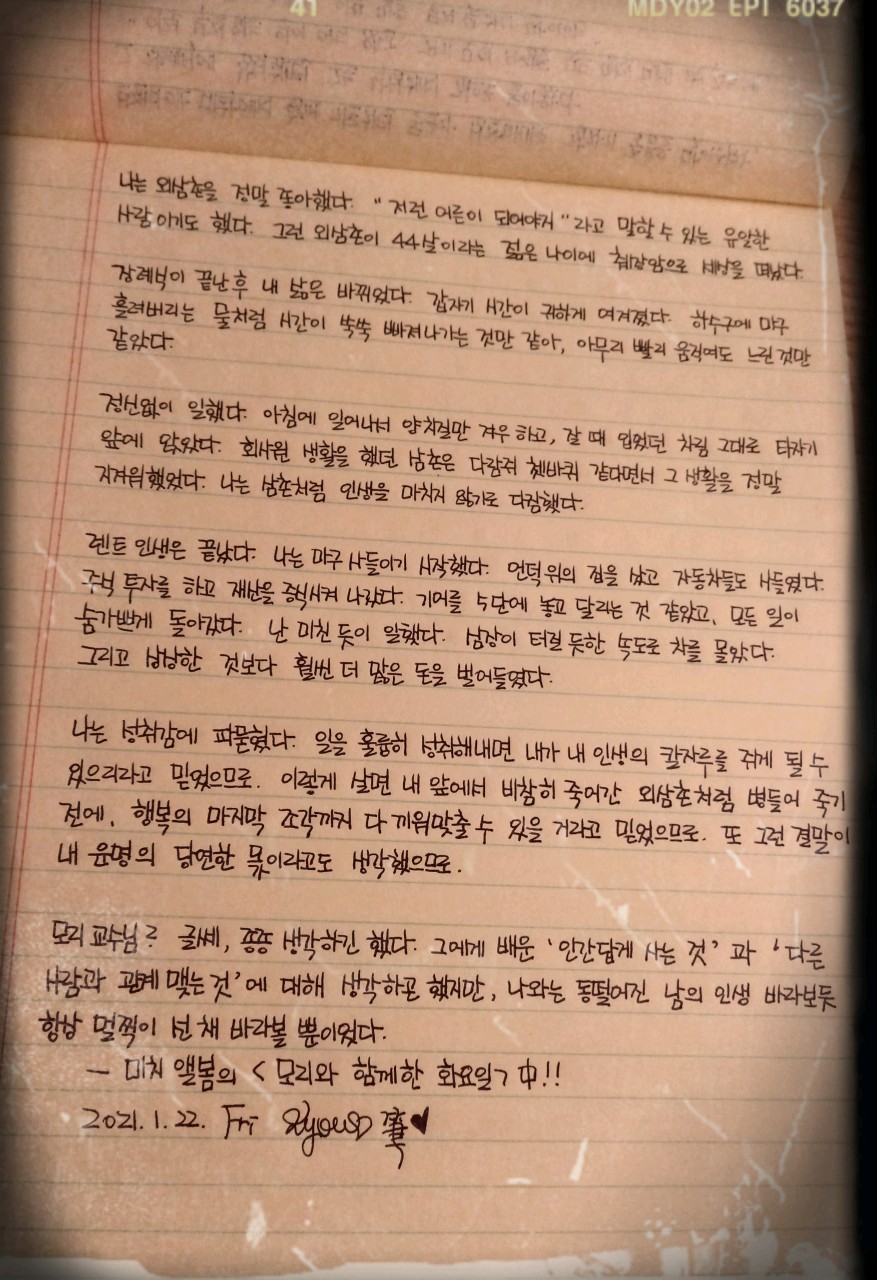 41 MDY02 EPI 6037
나는 외삼촌을 정말 좋아했다. "저런 어른이 되어야지"라고 말할 수 있는 유일한
사람이기도 했다. 그런 외삼촌이 44살이라는 젊은 나이에 췌장암으로 세상을 떠났다.
장례식이 끝난 후 내 삶은 바뀌었다. 갑자기 시간이 귀하게 여겨졌다. 하수구에 마구
흘려버리는 물처럼 시간이 쑥쑥 빠져나가는 것만 같아, 아무리 빨리 움직여도 느린 것만
같았다.
정신없이 일했다. 아침에 일어나서 양치질만 겨우 하고, 잘 때 입었던 차림 그대로 타자기
앞에 앉았다. 회사원 생활을 했던 삼촌은 다람쥐 쳇바퀴 같다면서 그 생활을 정말
지겨워했었다. 나는 삼촌처럼 인생을 마치지 않기로 다짐했다.
렌트 인생은 끝났다. 나는 마구 사들이기 시작했다. 언덕위의 집을 샀고 자동차들도 사들였다.
주식 투자를 하고 재산을 증식시켜 나갔다. 기어를 5단에 놓고 달리는 것 같았고, 모든 일이
숨가쁘게 돌아갔다. 난 미친 듯이 일했다. 심장이 터질 듯한 속도로 차를 몰았다.
그리고 상상한 것보다 훨씬 더 많은 돈을 벌어들였다.
나는 성취감에 파묻혔다. 일을 훌륭히 성취해내면 내가 내 인생의 칼자루를 쥐게 될 수
있으리라고 믿었으므로. 이렇게 살면 내 앞에서 비참히 죽어간 외삼촌처럼 병들어 죽기
전에, 행복의 마지막 조각까지 다 끼워맞출 수 있을 거라고 믿었으므로. 또 그런 결말이
내 운명의 당연한 몫이라고도 생각했으므로.
모리 교수님? 글쎄, 종종 생각하긴 했다. 그에게 배운 '인간답게 사는 것'과 '다른
사람과 관계 맺는 것'에 대해 생각하곤 했지만, 나와는 동떨어진 남의 인생 바라보듯
항상 멀찍이 선 채 바라볼 뿐이었다.
- 미치 앨봄의 <모리와 함께한 화요일> 中!!
2021. 1. 22. Fri